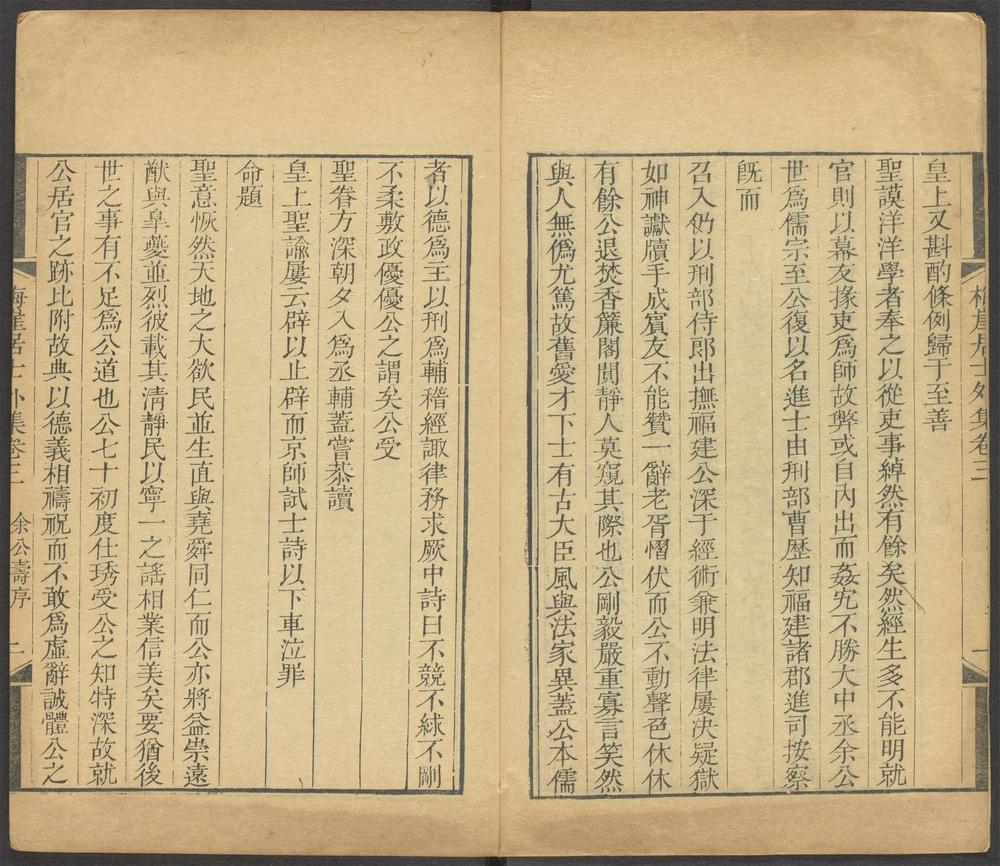 梅崖居士外集卷三
皇上又斟酌條例歸于至善
聖謨洋洋學者奉之以從吏事綽然有餘矣然經生多不能明就
官則以幕友掾吏爲師故弊或自內出而姦宄不勝大中丞余公
世爲儒宗至公復以名進士由刑部曹歷知福建諸郡進司按察
旣而
召入仍以刑部侍郎出撫福建公深于經術兼明法律屢決疑獄
如神讞牘手成賓友不能贊一辭老胥慴伏而公不動聲色休休
有餘公退焚香簾閣閴靜人莫窺其際也公剛毅嚴重寡言笑然
與人無僞尤篤故舊愛才下士有古大臣風與法家異蓋公本儒
者以德爲王以刑爲輔稽經諏律務求厥中詩曰不競不絿不剛
不柔敷政優優公之謂矣公受
聖眷方深朝夕入爲丞輔蓋嘗恭讀
皇上聖諭屢云辟以止辟而京師試士詩以下車泣罪
命題
聖意恢然天地之大欲民並生直與堯舜同仁而公亦將益崇遠
猷與皐夔並烈彼載其淸靜民以寧一之謠相業信美矣要猶後
世之事有不足爲公道也公七十初度仕琇受公之知特深故就
公居官之跡比附故典以德義相禱祝而不敢爲虛辭誠體公之
梅崖居士外集卷三 余公壽序 二